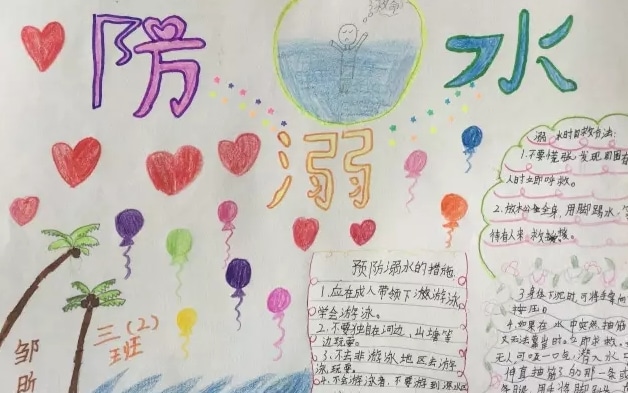 防
水
溺
救命
溺水时自救方法:
1.不要慌张,发现周围有
人时立即呼救。
2.放松全身,用脚踢水,
待有人来
3.身体下沉时,可将手掌向
4.如果在水中突然抽筋
又无法靠岸时,立即求救。
无人可吸一口气,潜入水
伸直抽筋了的那一条或
预防溺水的措施
1.应在成人带领下游泳
学会游泳。
2.不要独自在河边、山塘等
边玩耍。
3.不去非游泳地区去游
泳,玩耍。
4.不会游泳者,不要游到深水区
三(2)
班
邹
昕